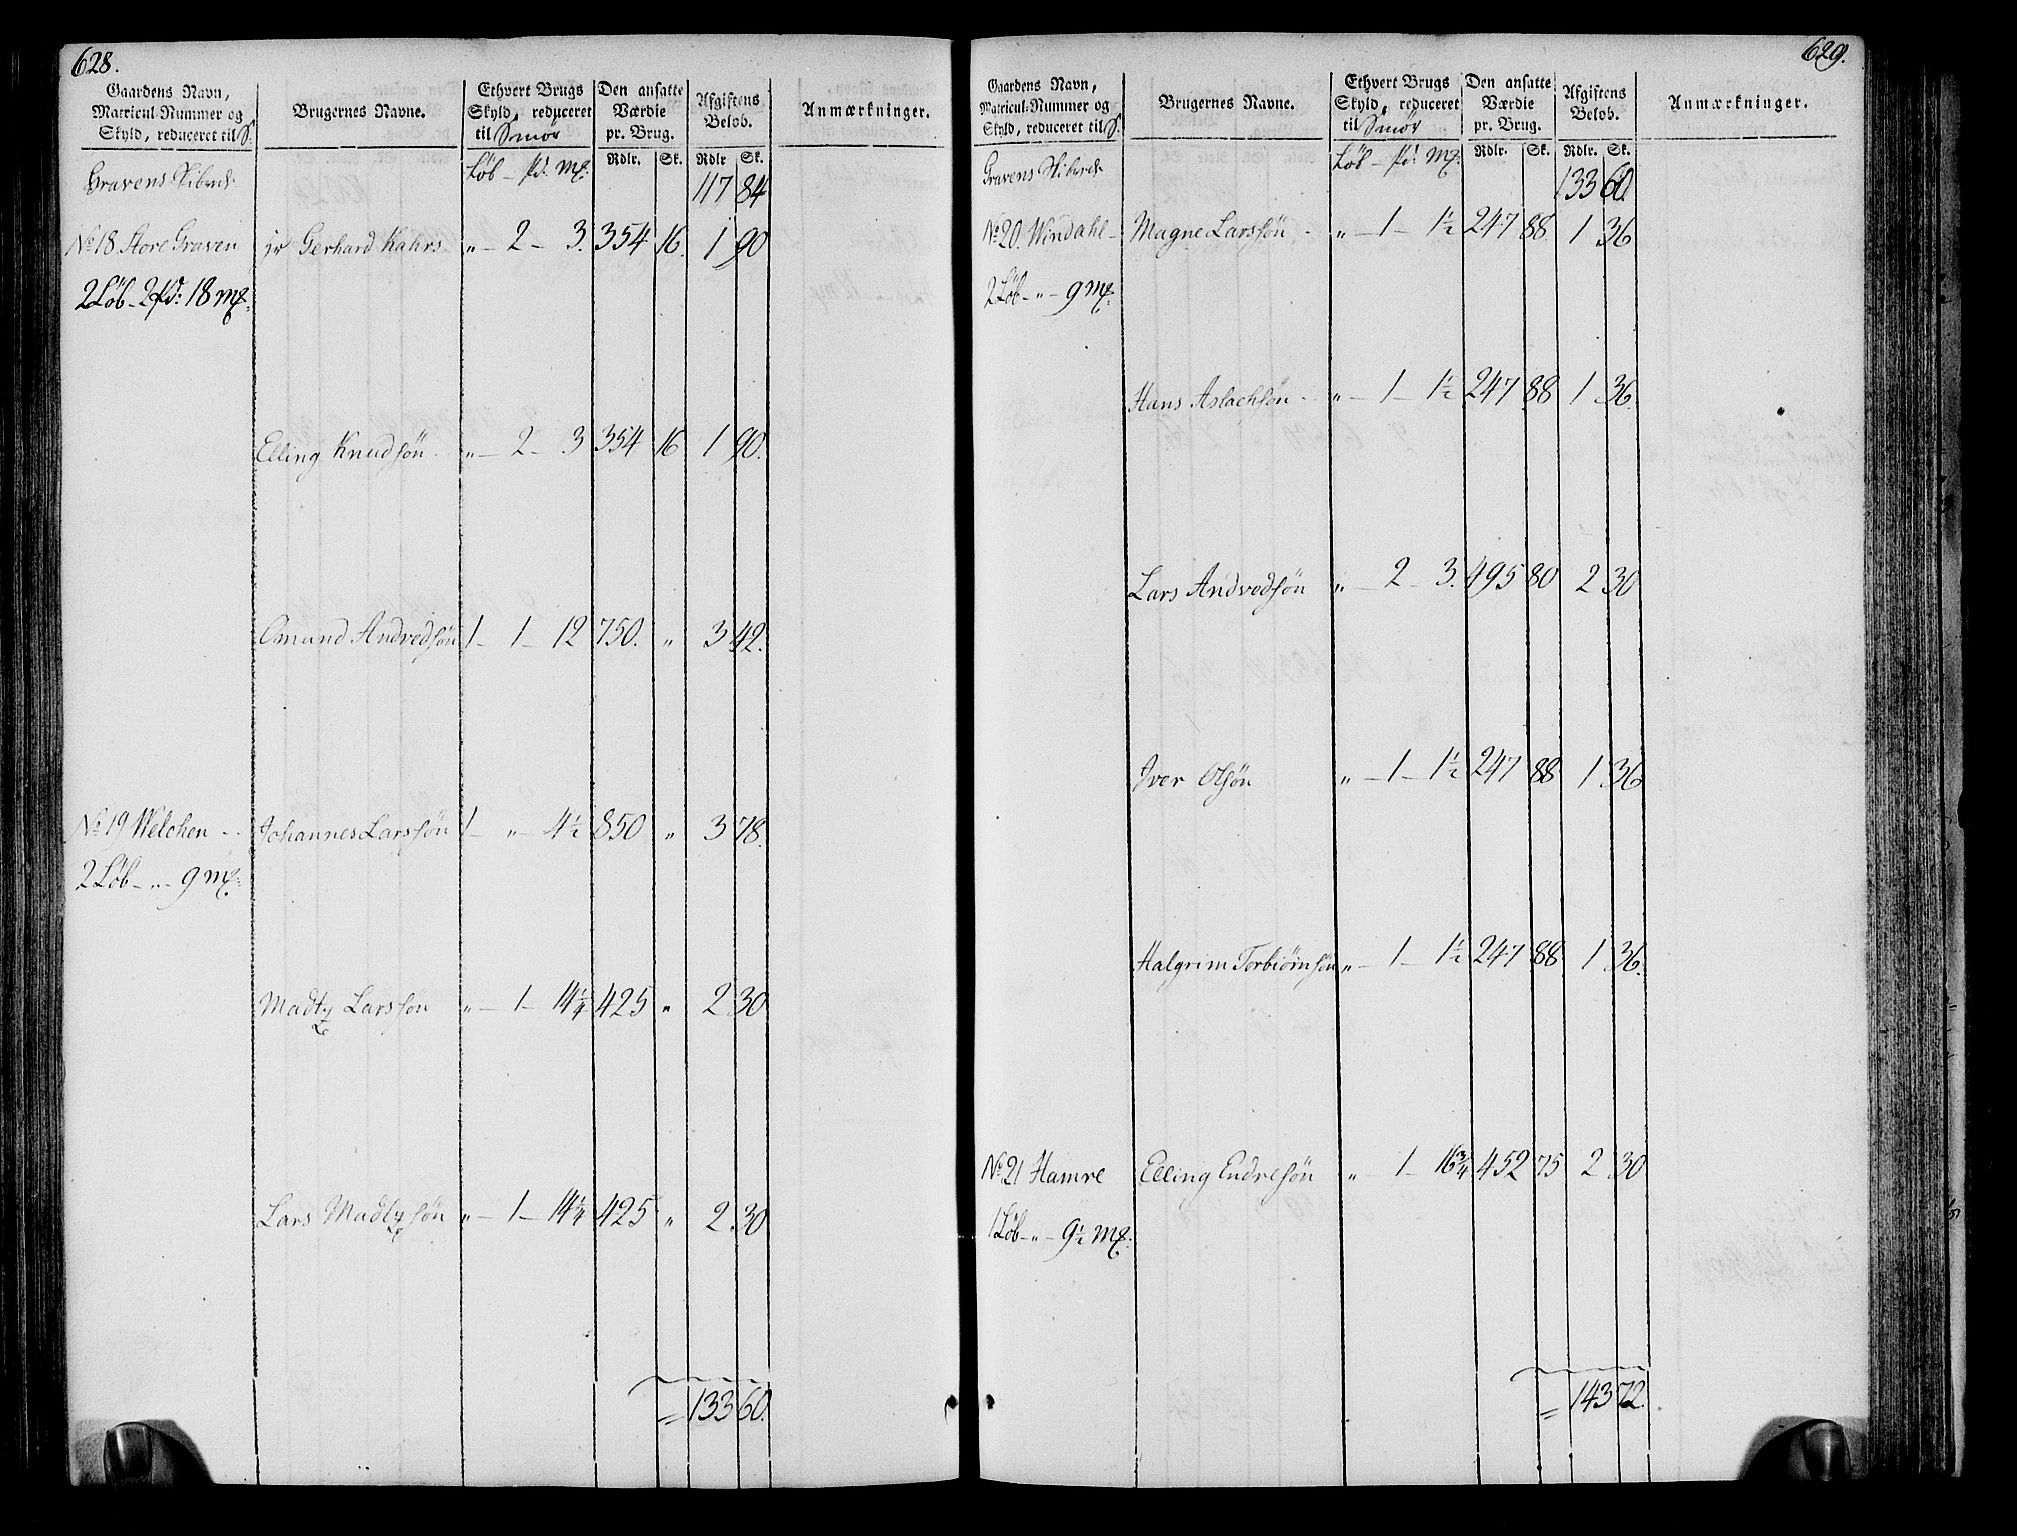 628.
Gaardens Navn, Matricul-Nummer og Skyld, reduceret til S. Brugernes Navne. Ethvert Brugs Skyld, reduceret til Smör Den ansatte Værdie pr. Brug. Afgiftens Beløb. Anmærkninger.
Rdlr. Sk. Rdlr Sk.
Gravens Skibrede Löb - Pd: Mk: 117 84
No 18 Store Graven Hr Gerhard Kahrs „ - 2 - 3. 354 16. 1 90
2 Löb - 2 Pd: 18 Mk:
Elling Knudsön „ - 2 - 3 354 16 1 90.
Omund Andvedsön 1 - 1 - 12 750. „ 3 42.
No 19 Welchen - - Johannes Larssön 1 - „ - 4½ 850 „ 3 78.
2 Löb - „ - 9 Mk:
Madtz Larssön „ - 1 - 14¼ 425 „ 2 30
Lars Madtzsön „ - 1 - 14¼ 425 „ 2 30
= 133 60.
629.
Gaardens Navn, Matricul-Nummer og Skyld, reduceret til S. Brugernes Navne. Ethvert Brugs Skyld, reduceret til Smör Den ansatte Værdie pr. Brug. Afgiftens Belöb. Anmærkninger.
Rdlr. Sk. Rdlr. Sk.
Gravens Skibrede Löb - Pd: Mk: 133 60.
No 20. Windahl - Magne Larssön - „ - 1 - 1½ 247 88. 1 36
2 Löb - „ - 9 Mk:
Hans Aslachsön - „ - 1 - 1½ 247 88 1 36.
Lars Andvedsön „ - 2 - 3. 495 80 2 30
Iver Olsön „ - 1 - 1½ 247 88 1 36
Halgrim Torbiörnsön „ - 1 - 1½ 247 88 1 36.
No 21 Hamre Elling Endresön „ - 1 - 16¾ 452 75 2 30
1 Löb - „ - 9½ Mk:
= 143 72.